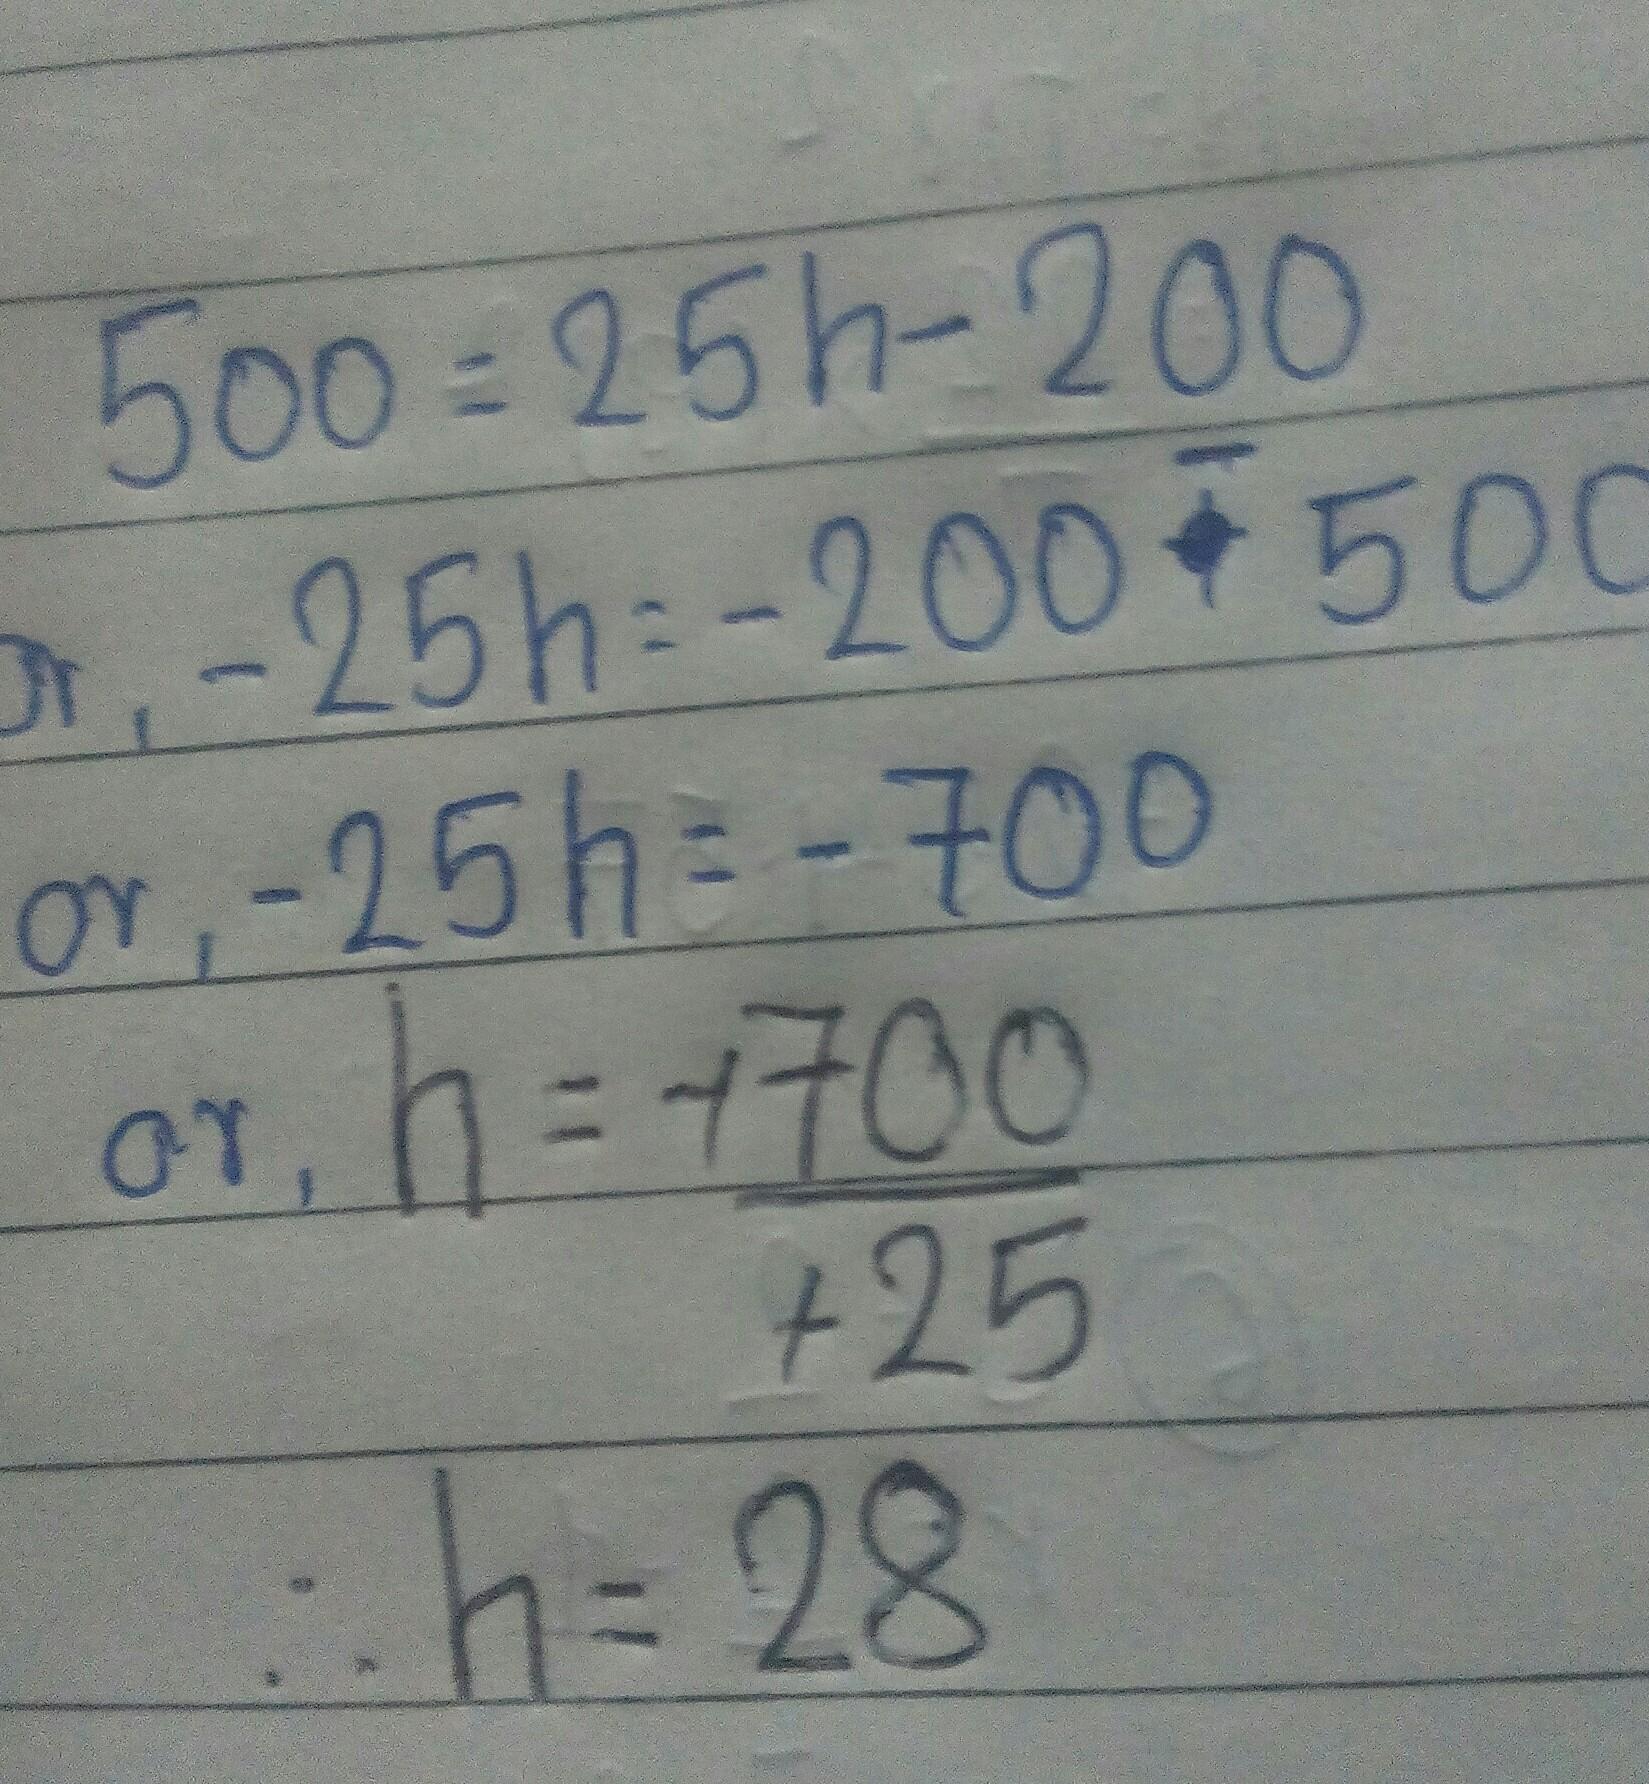 500 = 25h - 200
or, -25h = -200 - 500
or, -25h = -700
or, h = +700
+25
∴ h = 28